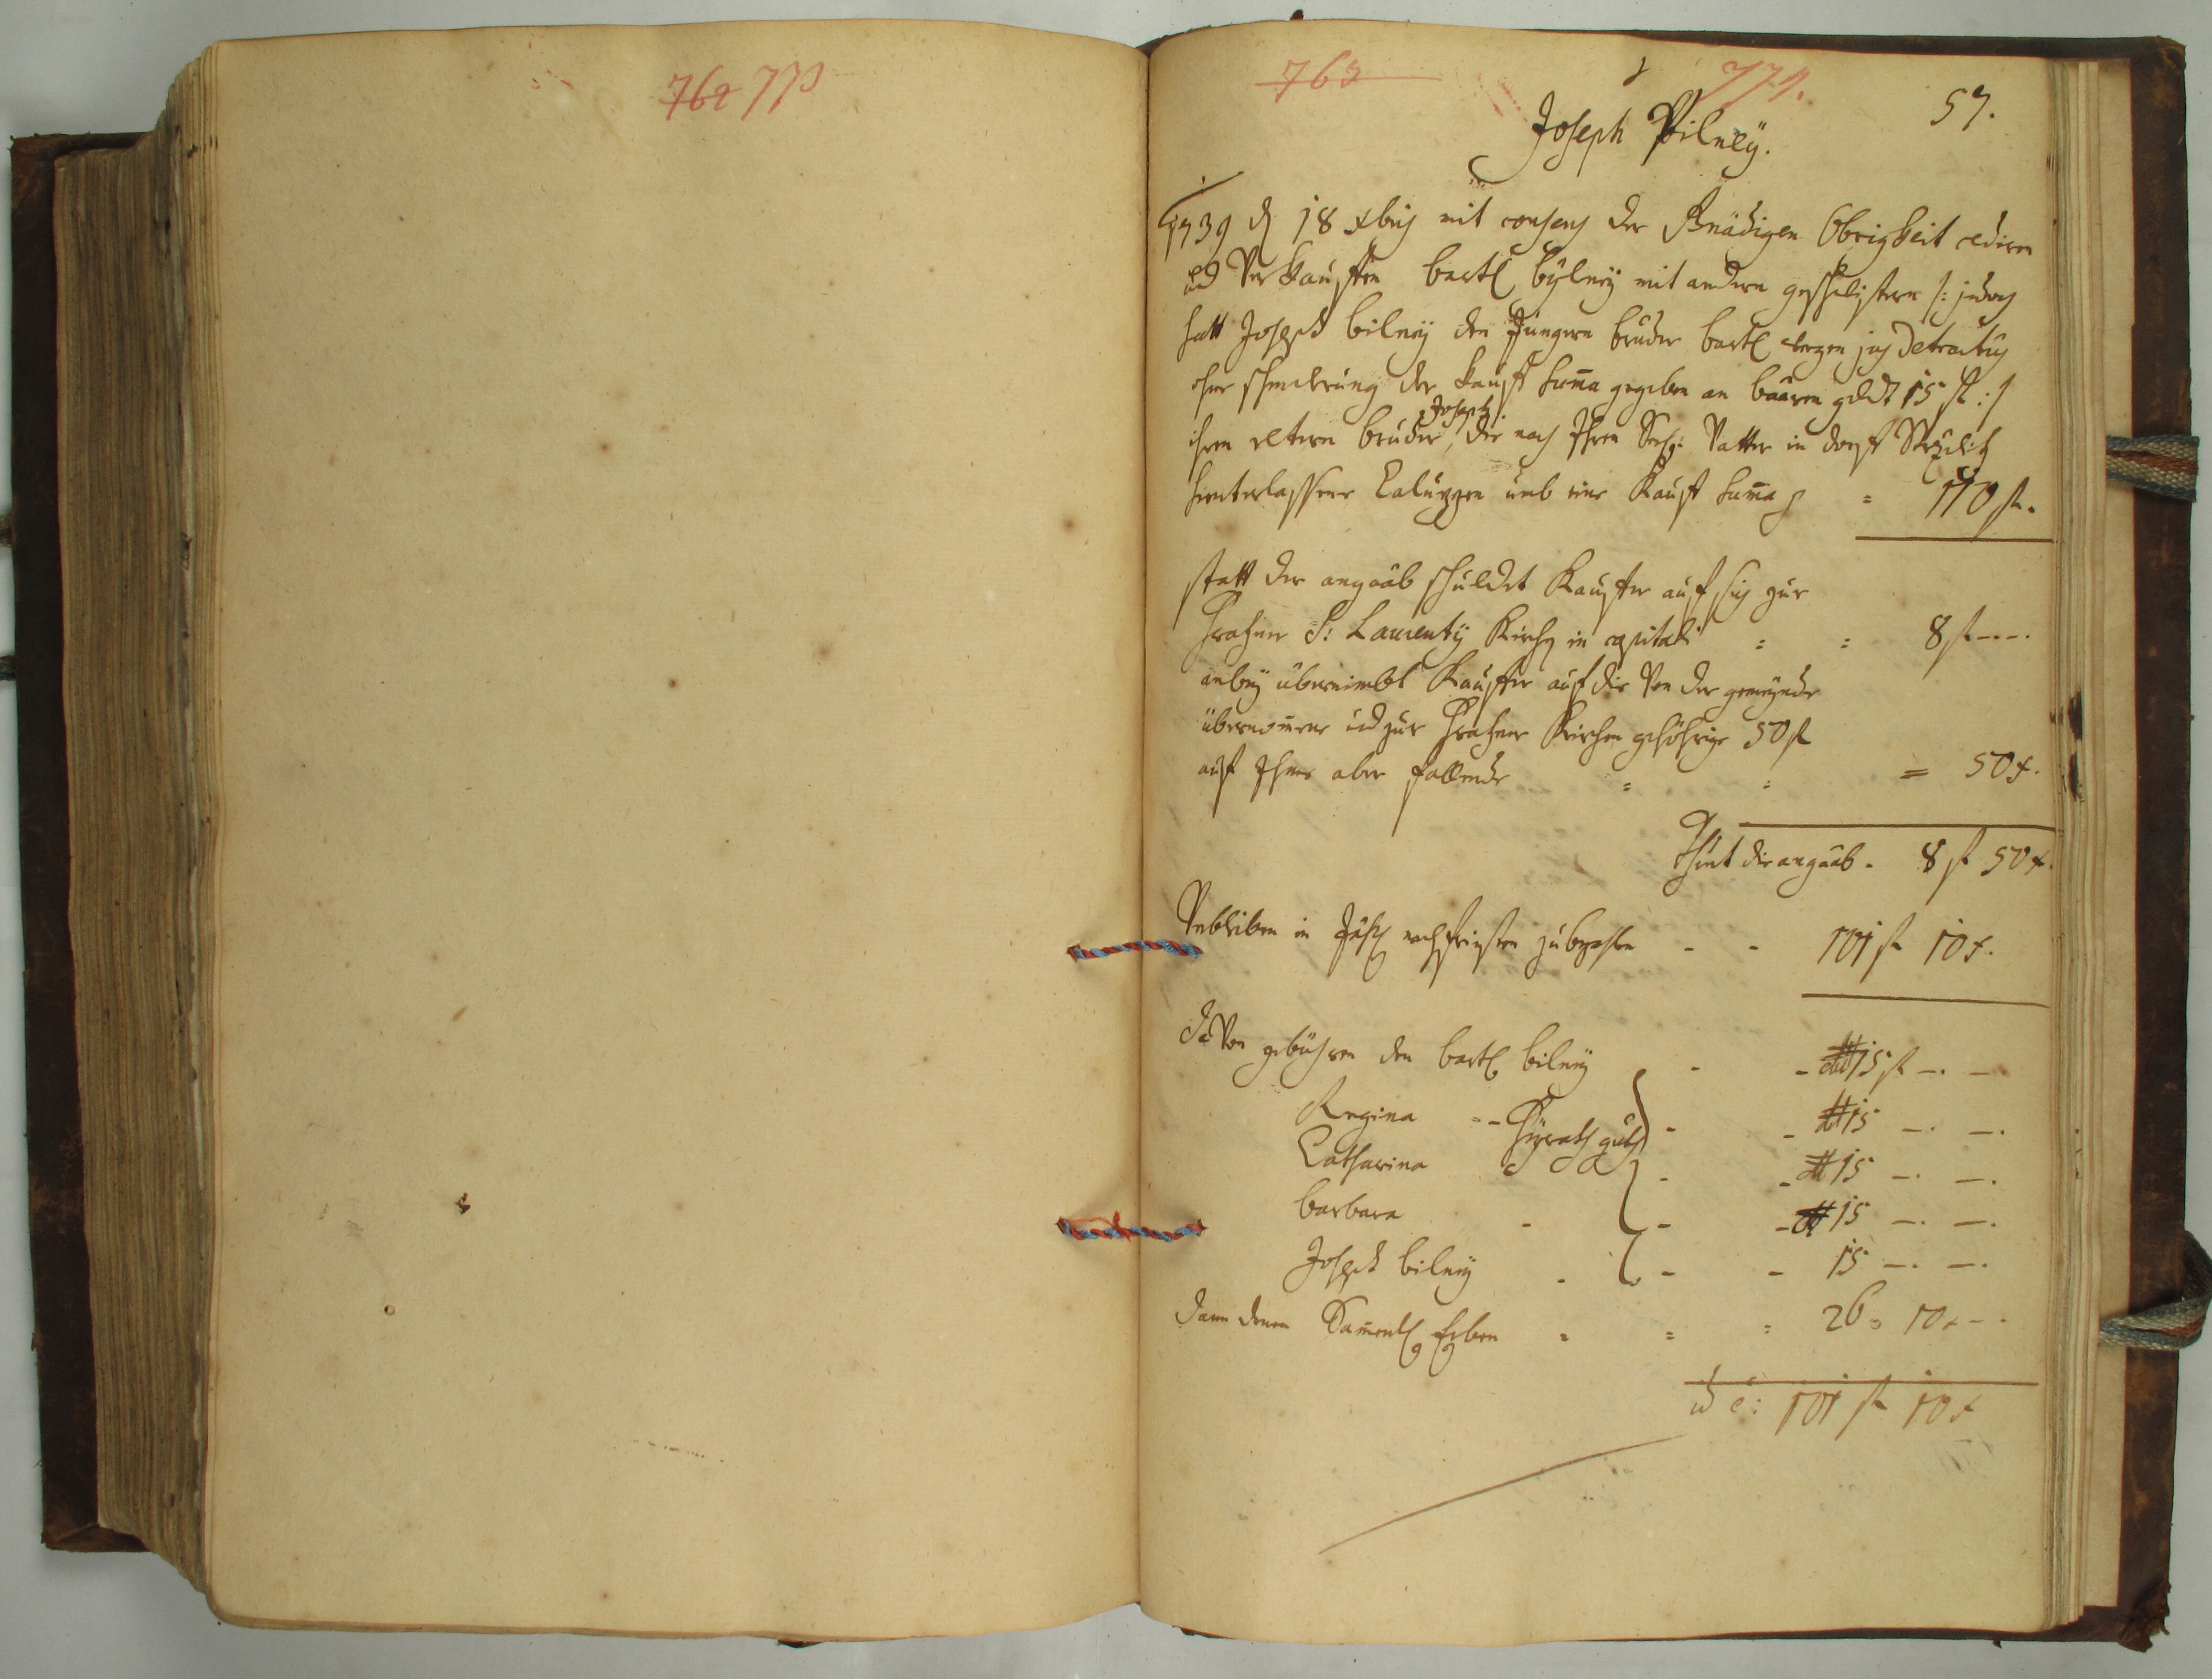 762 770
763 771.
57.
Joseph Pilneÿ.
1739 d 18 xbris mit consens der Gnädigen Obrigkeit cediren
und Verkauffen bartl bÿlneÿ mit andern geschwistern /: jedoch
hatt Joseph bilneÿ den Jüngern bruder bartl wegen detractus
ohne schmelerung der kauff Suma gegeben an baaren geldt 15 fl :/
ihren eltern bruder Joseph, die nach Ihren Seel: Vatter in dorff
hinterlassene Caluppen umb eine Kauff Suma = 110 fl.
statt der angaab schuldet Kauffer auf sich zur
S: Laurentÿ Kirch in capitali = = 8 fl - - -
anbeÿ übernimbt Kauffer auf die Von der gemeÿnde
übernomene und zur Kirchen gehöhrige 50 fl
auf Ihme aber fallende = = = 50 x.
Thut die angaab. 8 fl 50 x.
Verbleiben in Jahrl nachfristen zubezahlen - - 101 fl 10 x.
daVon gebühren den bartl bilneÿ - - 15 fl - . -
Regina - - Heÿrath guth - - 15 - . - .
Catharina - - 15 - . - .
barbara - - - 15 - . - .
Joseph bilneÿ . - - 15 - . - .
dann denen Samentl Erben = = = 26 = 10 x - .
101 fl 10 x